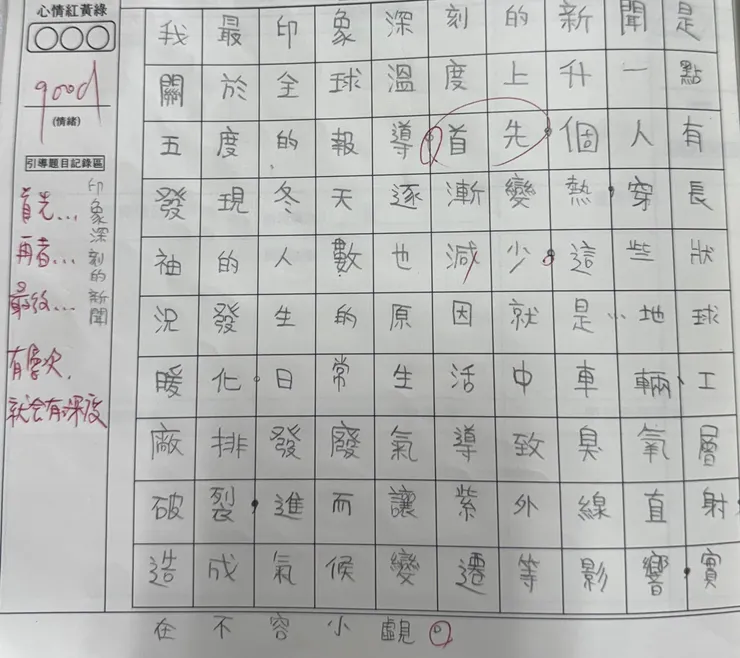 心情紅黃綠
good
(情緒)
引導題目記錄區
印象深刻的新聞
首先...
再者...
最後...
有層次,
就会有深度
我最印象深刻的新聞是
關於全球溫度上升一點
五度的報導。首先,個人有
發現冬天逐漸變熱,穿長
袖的人數也減少。這些狀
況發生的原因就是、地球
暖化。日常生活中車輛、工
廠排發廢氣導致臭氧層
破裂,進而讓紫外線直射,
造成氣候變遷等影響,實
在不容小覷。